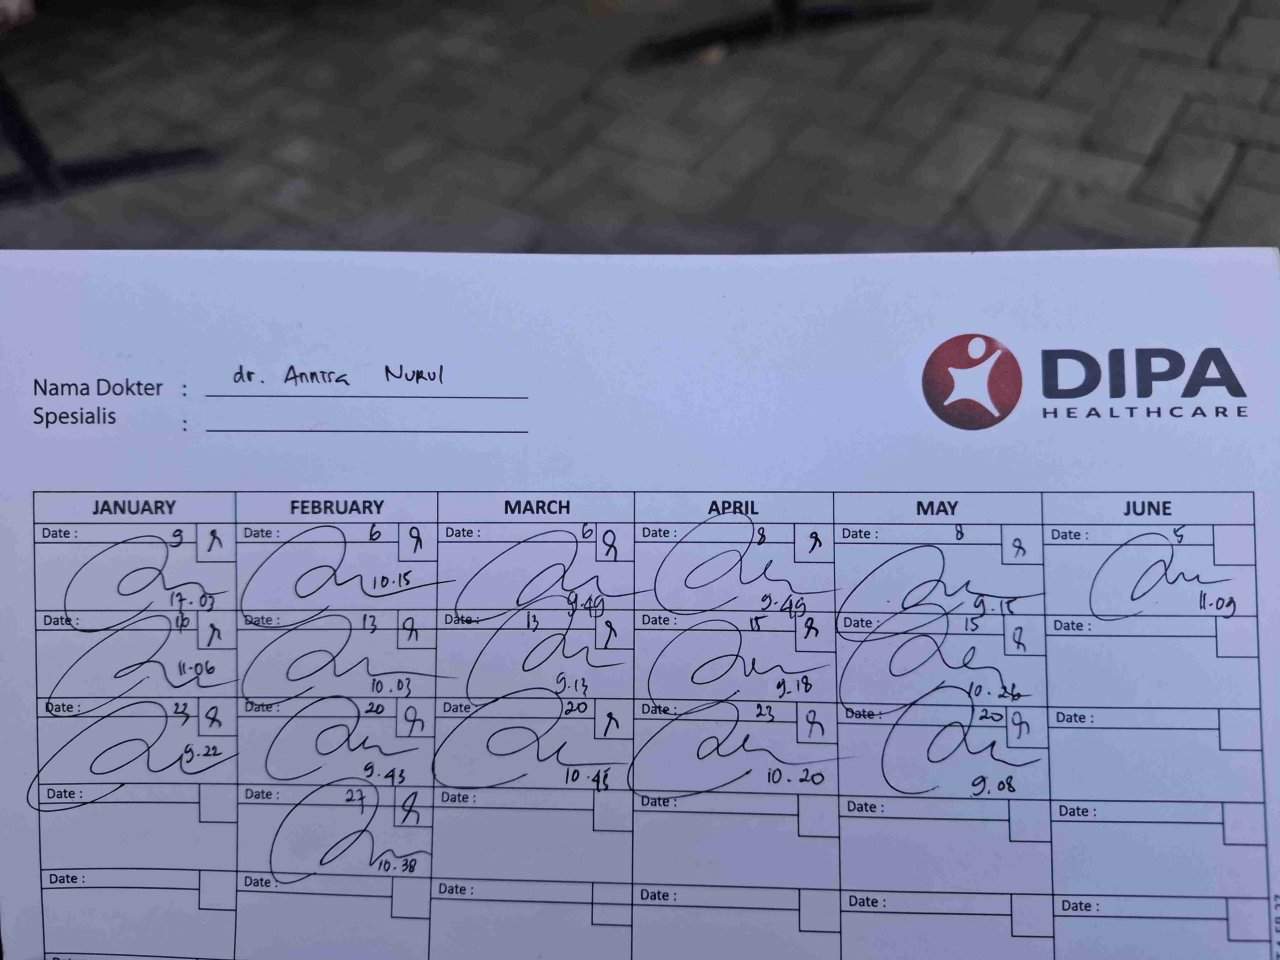 dr. Annisa Nurul
Nama Dokter :
Spesialis :
DIPA
HEALTHCARE
JANUARY FEBRUARY MARCH APRIL MAY JUNE
Date : 9 Date : 6 Date : 6 Date : 8 Date : 8 Date : 5
17.03 10.15 9.49 9.49 9.15 11.09
Date : 16 Date : 13 Date : 13 Date : 15 Date : 15 Date :
11.06 10.03 9.13 9.18 10.26
Date : 23 Date : 20 Date : 20 Date : 23 Date : 20 Date :
9.22 9.43 10.45 10.20 9.08
Date : Date : 27 Date : Date : Date : Date :
10.38
Date : Date : Date : Date : Date : Date :
Date :